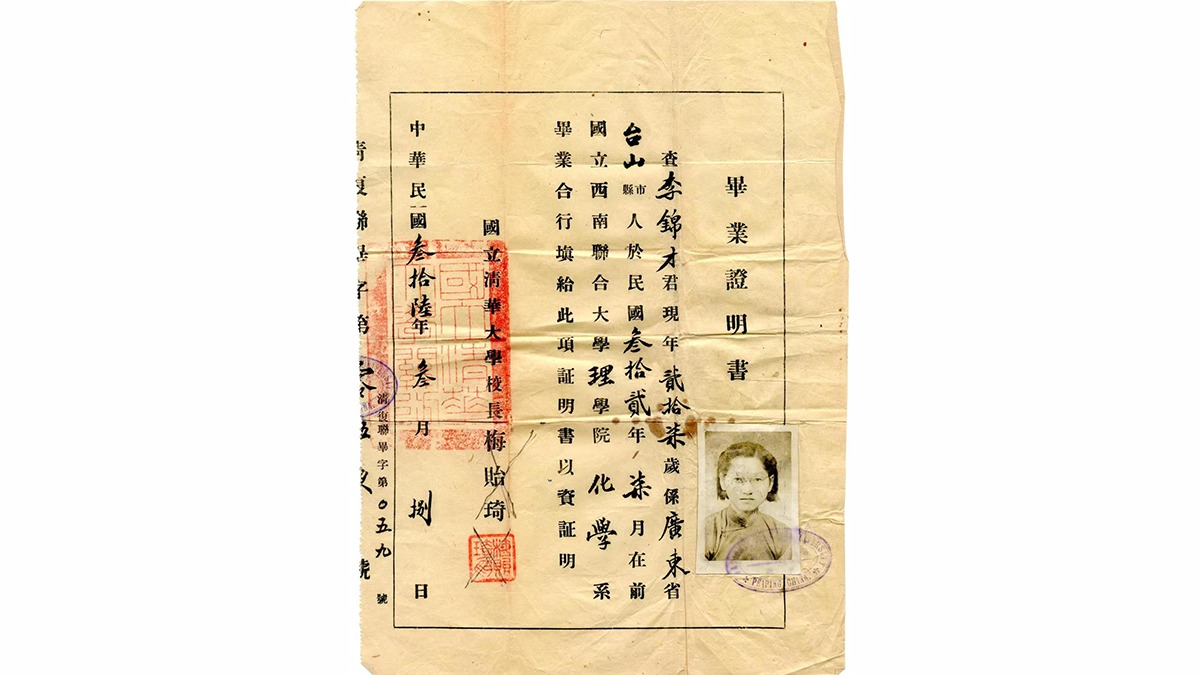 畢業證明書
查李錦才君現年貳拾柒歲係廣東省
台山縣市人於民國叁拾貳年柒月在前
國立西南聯合大學理學院化學系
畢業合行填給此項証明書以資証明
國立清華大學校長梅貽琦
中華民國叁拾陸年叁月捌日
清復聯畢字第〇五九號
PEIPING, CHINA